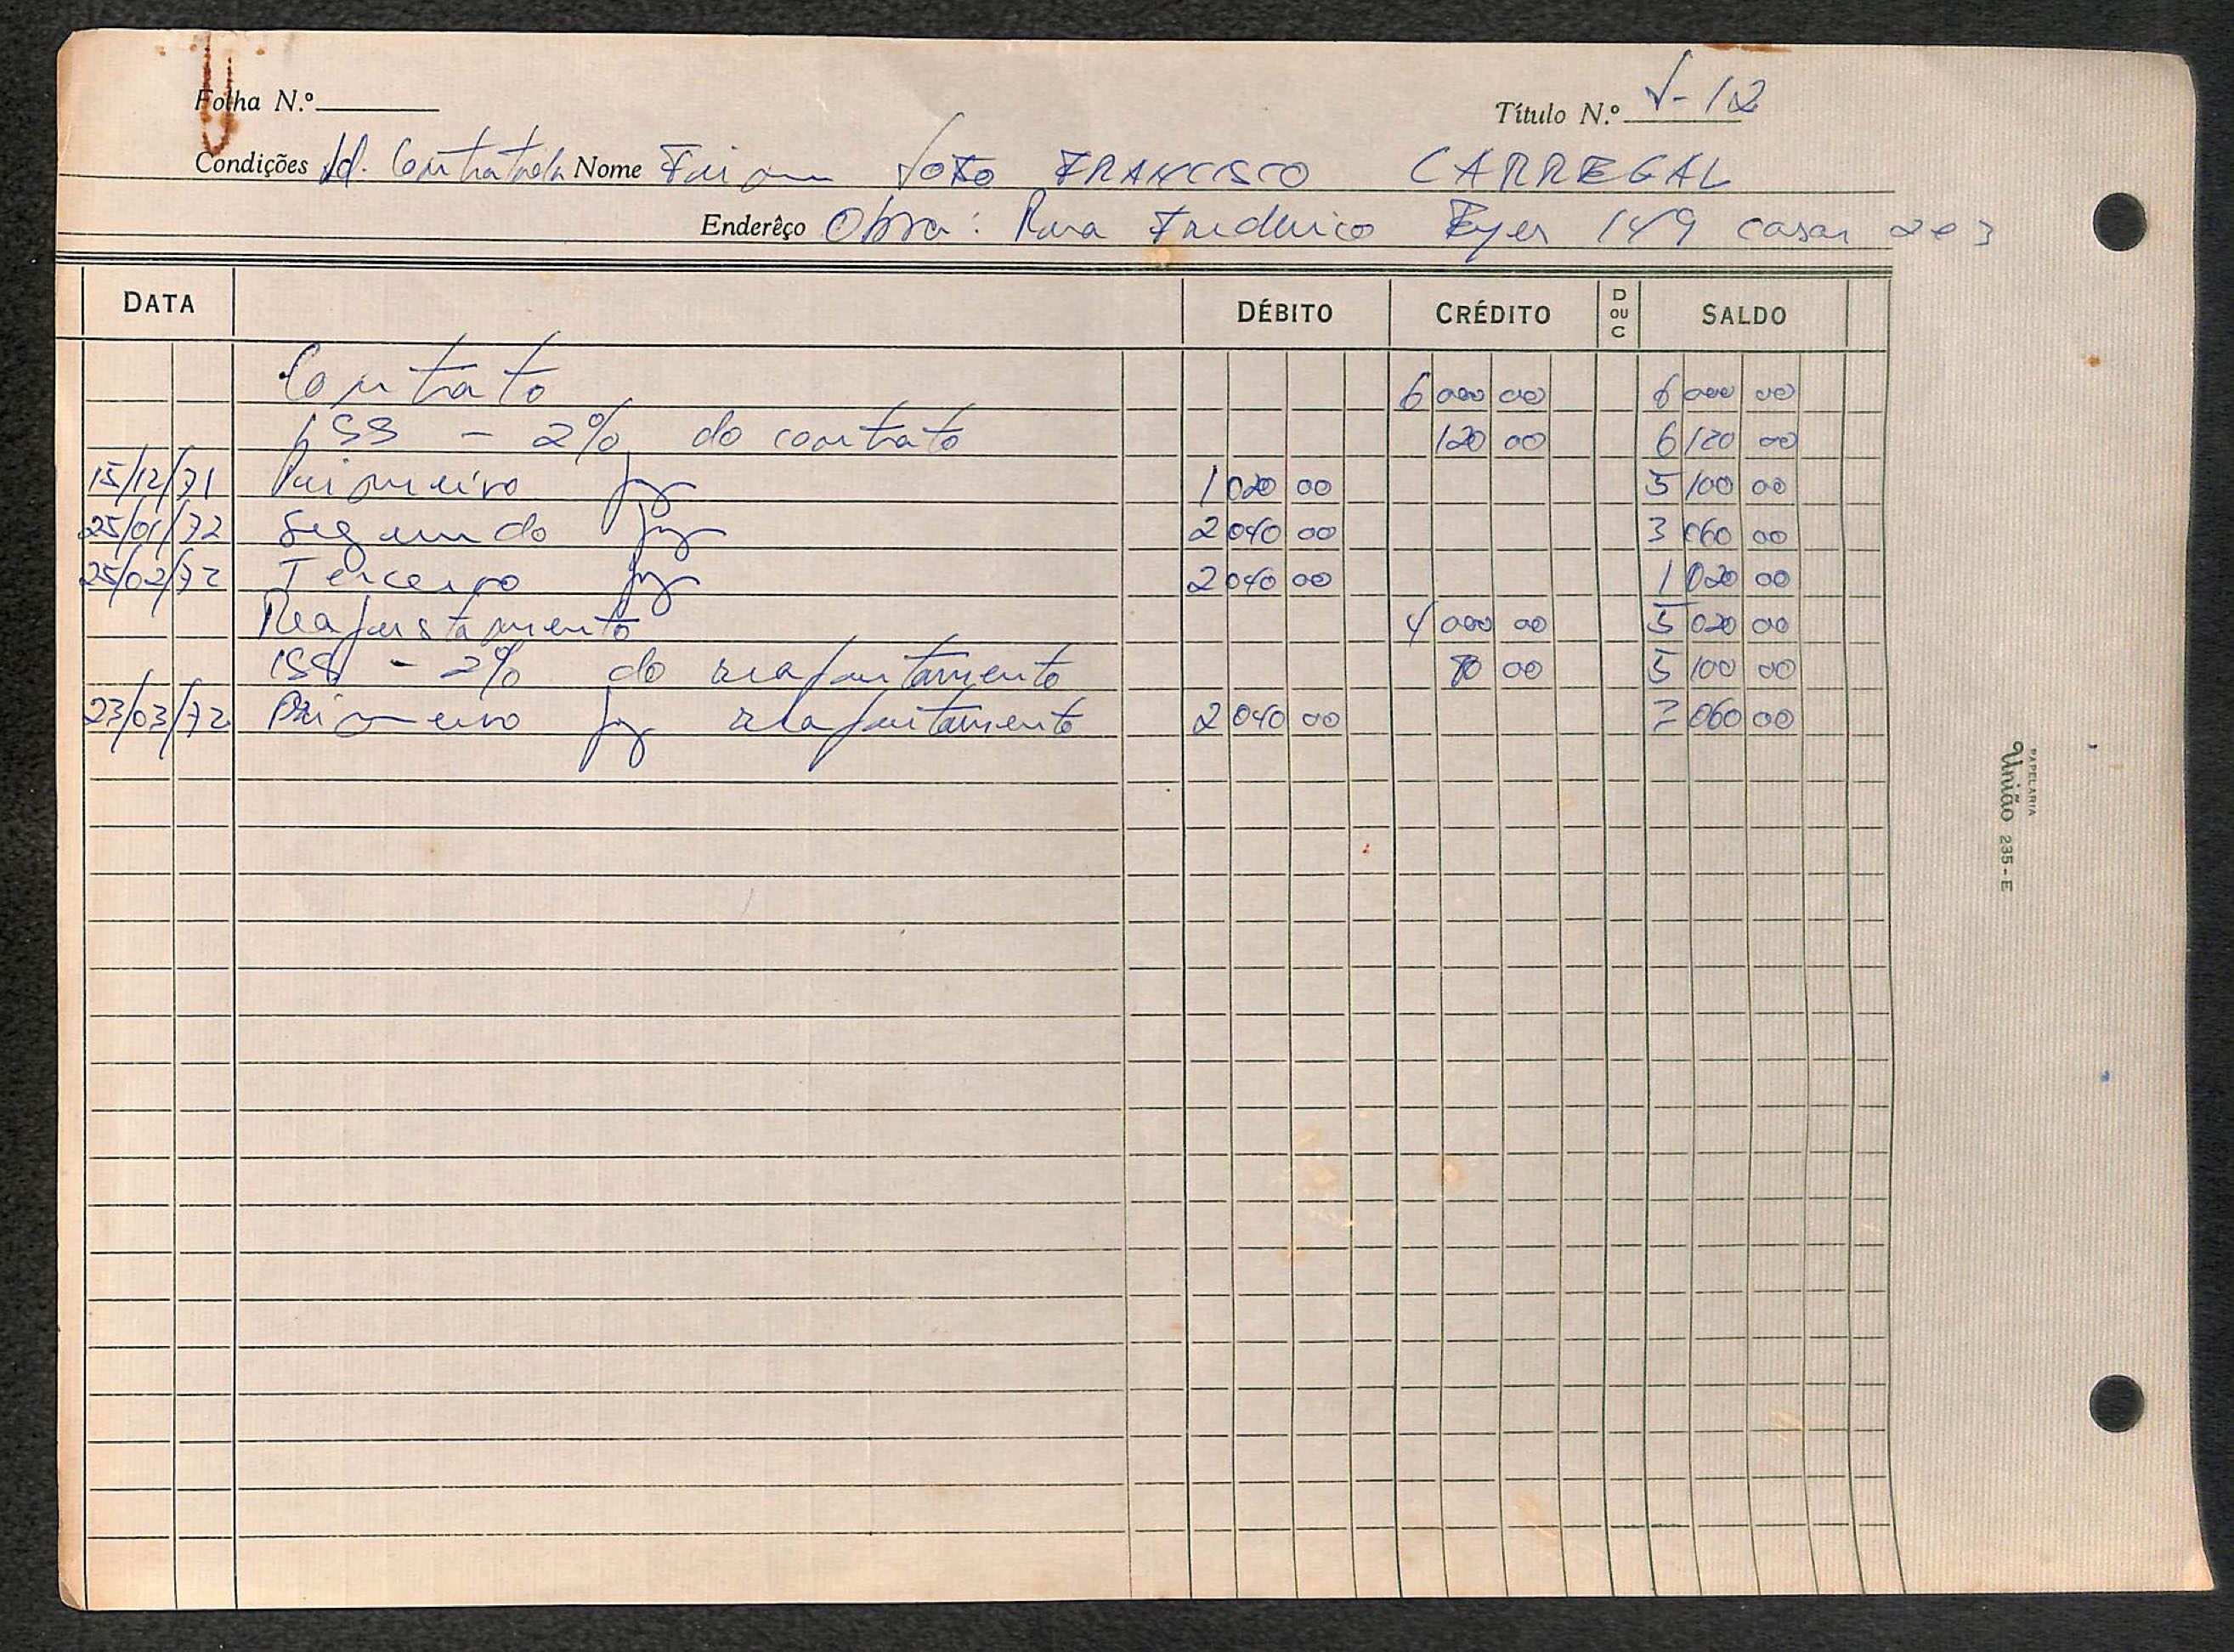 Folha N.º
Título N.º J-12
Condições Nome JOÃO FRANCISCO CARREGAL
Enderêço Obra: Rua Frederico Eyer 149 casas 2 e 3
DATA DÉBITO CRÉDITO D OU C SALDO
Contrato 6 000 00 6 000 00
ISS - 2% do contrato 120 00 6 120 00
15/12/71 Primeiro pg 1 020 00 5 100 00
25/01/72 Segundo pg 2 040 00 3 060 00
25/02/72 Terceiro pg 2 040 00 1 020 00
Reajustamento 4 000 00 5 020 00
ISS - 2% do reajustamento 80 00 5 100 00
23/03/72 Primeiro pg reajustamento 2 040 00 3 060 00
PAPELARIA
União 235-E